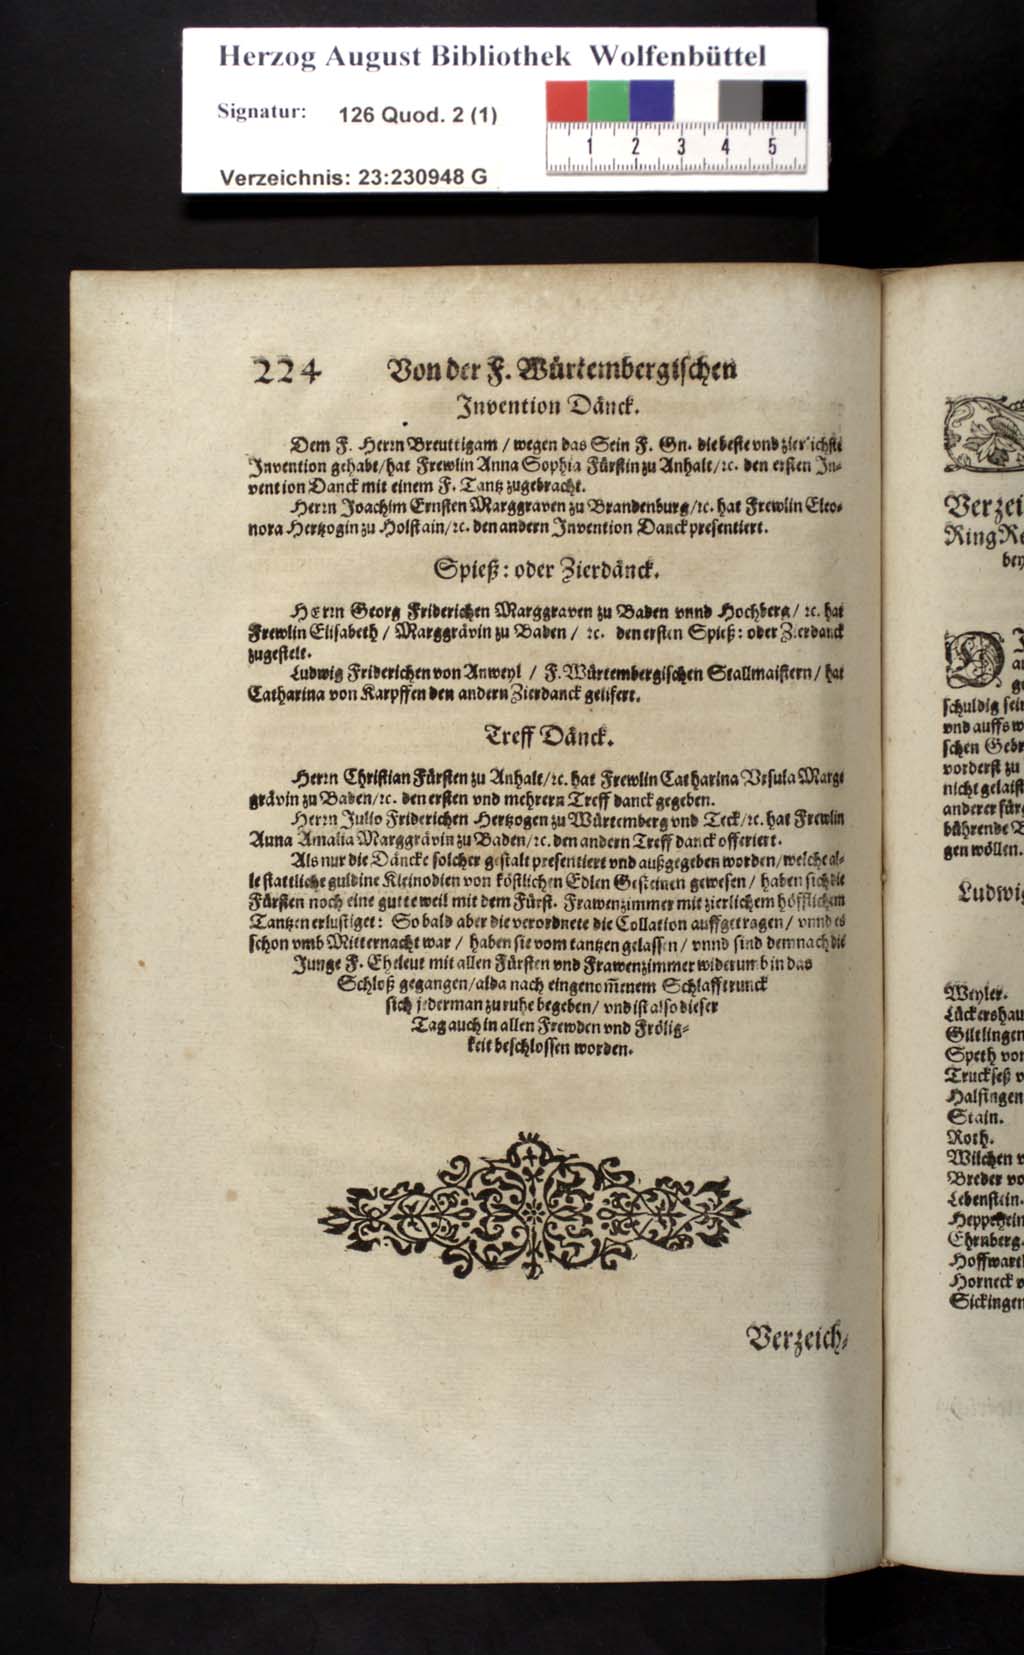 Herzog August Bibliothek Wolfenbüttel
Signatur: 126 Quod. 2 (1)
1 2 3 4 5
Verzeichnis: 23:230948 G
224 Von der F. Würtembergischen
Invention Dänck.
Dem F. Herrn Breuttigam / wegen das Sein F. Gn. die beste vnd zierlichste
Invention gehabt/hat Frewlin Anna Sophia Fürstin zu Anhalt/ꝛc. den ersten In-
vention Danck mit einem F. Tantz zugebracht.
Herrn Joachim Ernsten Marggraven zu Brandenburg/ꝛc. hat Frewlin Eleo-
nora Hertzogin zu Holstain/ꝛc. den andern Invention Danck presentiert.
Spieß: oder Zierdänck.
Herrn Georg Friderichen Marggraven zu Baden vnnd Hochberg/ ꝛc. hat
Frewlin Elisabeth / Marggrävin zu Baden / ꝛc. den ersten Spieß: oder Zierdanck
zugestelt.
Ludwig Friderichen von Anweyl / F. Würtembergischen Stallmaistern/ hat
Catharina von Karpffen den andern Zierdanck gelifert.
Treff Dänck.
Herrn Christian Fürsten zu Anhalt/ꝛc. hat Frewlin Catharina Vrsula Marg-
grävin zu Baden/ꝛc. den ersten vnd mehrern Treff danck gegeben.
Herrn Julio Friderichen Hertzogen zu Würtemberg vnd Teck/ꝛc. hat Frewlin
Anna Amalia Marggrävin zu Baden/ꝛc. den andern Treff danck offeriert.
Als nur die Däncke solcher gestalt presentiert vnd außgegeben worden/welche al-
le stattliche guldine Kleinodien von köstlichen Edlen Gesteinen gewesen / haben sich die
Fürsten noch eine gutte weil mit dem Fürst. Frawenzimmer mit zierlichem höfflichem
Tantzen erlustiget: So bald aber die verordnete die Collation auffgetragen / vnnd es
schon vmb Mitternacht war / haben sie vom tantzen gelassen / vnnd sind demnach die
Junge F. Eheleut mit allen Fürsten vnd Frawenzimmer widerumb in das
Schloß gegangen/alda nach eingenom̃enem Schlafftrunck
sich jederman zu ruhe begeben/ vnd ist also dieser
Tag auch in allen Frewden vnd Frölig-
keit beschlossen worden.
Verzeich-
Verzei
Ring Re
bey
schuldig sein
vnd auffs w
schen Gebr
vorderst zu
nicht gelaist
anderer fürg
bührende B
gen wöllen.
Ludwig
Weyler.
Lückershau
Giltlingen
Speth von
Truckseß v
Halfingen
Stain.
Roth.
Wilchen v
Breder vo
Lebenstein.
Heppehein
Ehrnberg.
Hoffwart
Horneck v
Sickingen